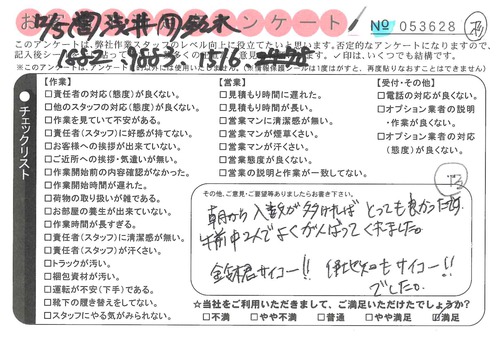 お
ンケート
№ 053628
このアンケートは、弊社作業スタッフのレベル向上に役立てたいと思います。否定的なアンケートになりますので、
※このアンケートは
(※情報保護シールは1度はがすと、再度貼りなおすことはできません)
チェックリスト
【作業】
□責任者の対応(態度)が良くない。
□他のスタッフの対応(態度)が良くない。
□作業を見ていて不安がある。
□責任者(スタッフ)に好感が持てない。
□お客様への挨拶が出来ていない。
□ご近所への挨拶・気遣いが無い。
□作業開始前の内容確認がなかった。
□作業開始時間が遅れた。
□荷物の取り扱いが雑である。
□お部屋の養生が出来ていない。
□作業時間が長すぎる。
□責任者(スタッフ)に清潔感が無い。
□責任者(スタッフ)が汗くさい。
□トラックが汚い。
□梱包資材が汚い。
□運転が不安(下手)である。
□靴下の履き替えをしてない。
□スタッフにやる気がみられない。
【営業】
□見積もり時間に遅れた。
□見積もり時間が長い。
□営業マンに清潔感が無い。
□営業マンが煙草くさい。
□営業マンが汗くさい。
□営業態度が良くない。
□営業の説明と作業が一致してない。
【受付・その他】
□電話の対応が良くない。
□オプション業者の説明
・作業が良くない。
□オプション業者の対応
(態度)が良くない。
その他、ご意見・ご要望等ありましたらお書き下さい。
朝から人数が多ければとっても良かった
午前中2人でよくがんばってくれました。
鈴木君サイコー!! 伊 もサイコー!!
でした。
☆当社をご利用いただきまして、ご満足いただけたでしょうか?
□不満 □やや不満 □普通 □やや満足 ☑満足